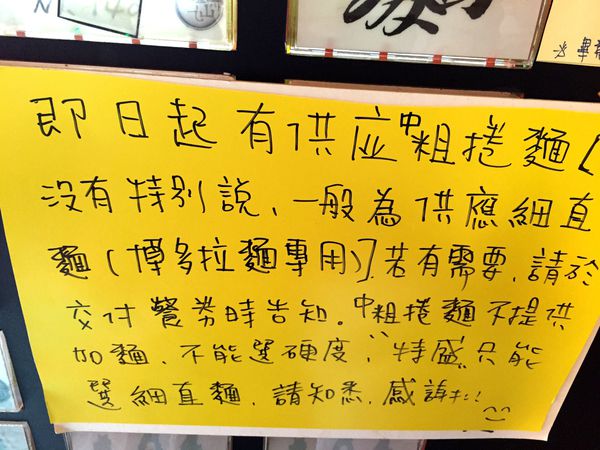 即日起有供应中粗捲麵[
沒有特別說、一般為供應細直
麵(博多拉麵專用)]若有需要,請於
交付餐券時告知。中粗捲麵不提供
加麵、不能選硬度;特盛只能
選細直麵,請知悉,感謝!!